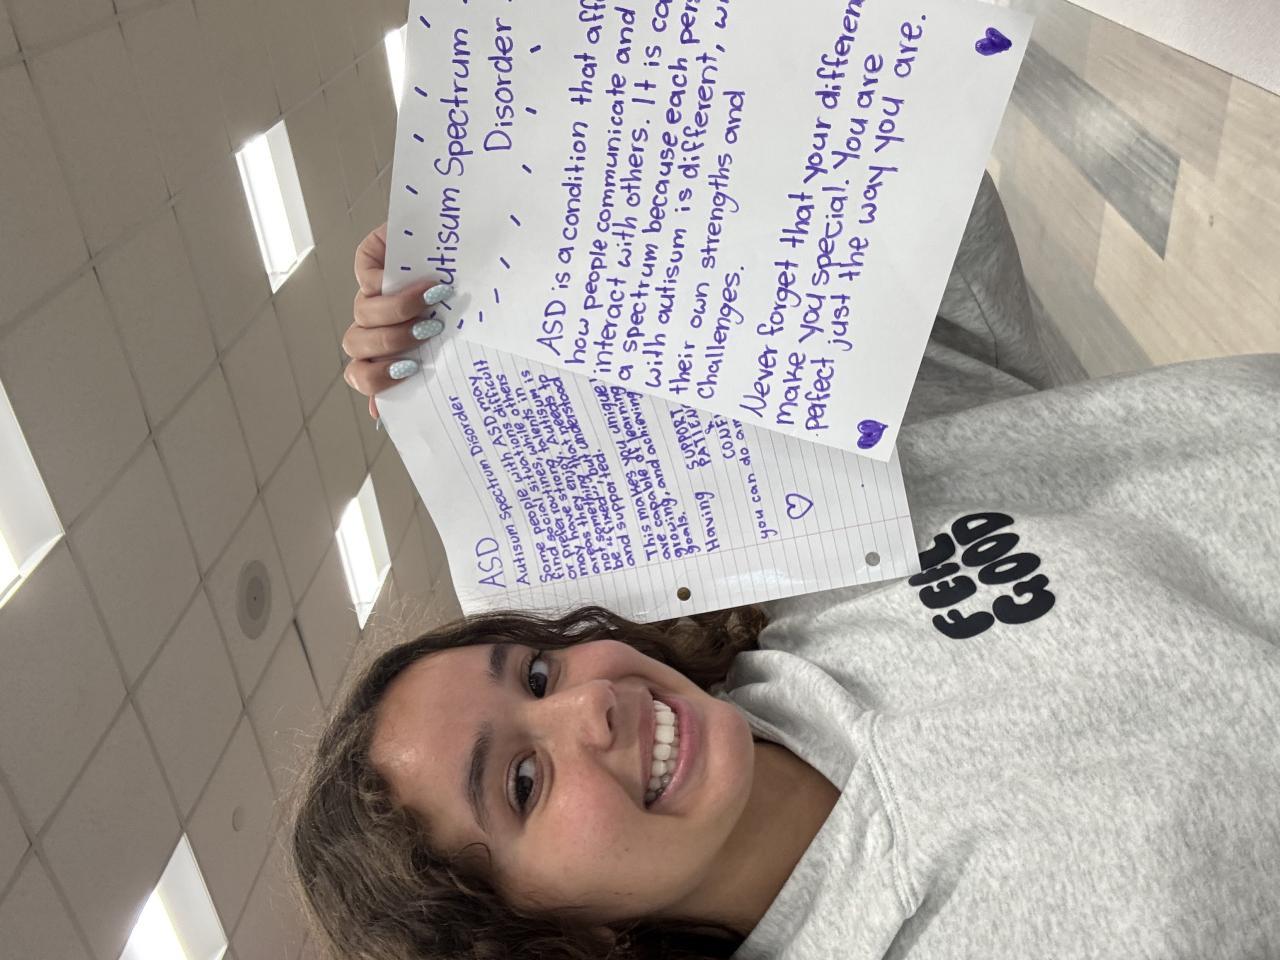 Autisum Spectrum
Disorder
ASD is a condition that aff
how people communicate and
interact with others. It is ca
a spectrum because each pers
with autisum is different, wi
their own strengths and
challenges.
Never forget that your differen
make you special. You are
perfect just the way you are.
ASD
Autisum Spectrum Disorder
Some people with ASD may
find social situations difficult
or prefer routines, while others
may have strong talents in
areas they enjoy. Autisum is
not something that needs to
be "fixed", but understood
and supported.
This makes you unique
are capable of learning
growing, and achieving
goals.
Having SUPPORT
PATIEN
CONF
you can do an
FEEL
GOOD